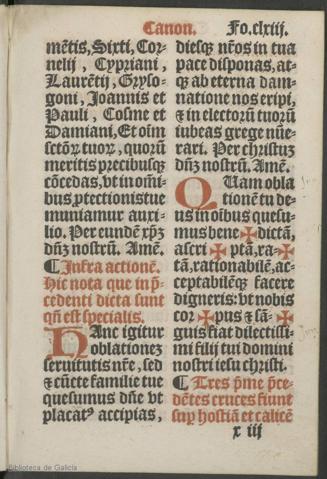 Canon. Fo.clxiij.
mẽtis, Sixti, Cor-
nelij, Cypriani,
Laurẽtij, Gryso-
goni, Joannis et
Pauli, Cosme et
Damiani, Et oĩm
sctõꝝ tuoꝝ, quorũ
meritis precibusqꝫ
cõcedas, vt in oĩbꝰ
bus ꝓtectionis tue
muniamur auxi-
lio. Per eundẽ xp̃ꝫ
dñꝫ nostrũ. Amẽ.
¶ Infra actionẽ.
Hic nota que in p̃-
cedenti dicta sunt
qñ est specialis.
HAnc igitur
oblationeꝫ
seruitutis nr̃e, sed
⁊ cũcte familie tue
quesumus dñe vt
placatꝰ accipias,
diesqꝫ nr̃os in tua
pace disponas, at-
qꝫ ab eterna dam-
natione nos eripi,
⁊ in electorũ tuorũ
iubeas grege nũe-
rari. Per christuꝫ
dñꝫ nostrũ. Amẽ.
QUam obla
tionẽ tu de-
us in oĩbus quesu-
mus bene ✠ dictã,
ascri ✠ ptã, ra- ✠
tã, rationabilẽ, ac-
ceptabilẽqꝫ facere
digneris: vt nobis
cor ✠ pus ⁊ sã- ✠
guis fiat dilectissi-
mi filij tui domini
nostri iesu christi.
¶ Tres p̃me p̃ce-
dẽtes cruces fiunt
suꝑ hostiã et calicẽ
x iij
Biblioteca de Galicia